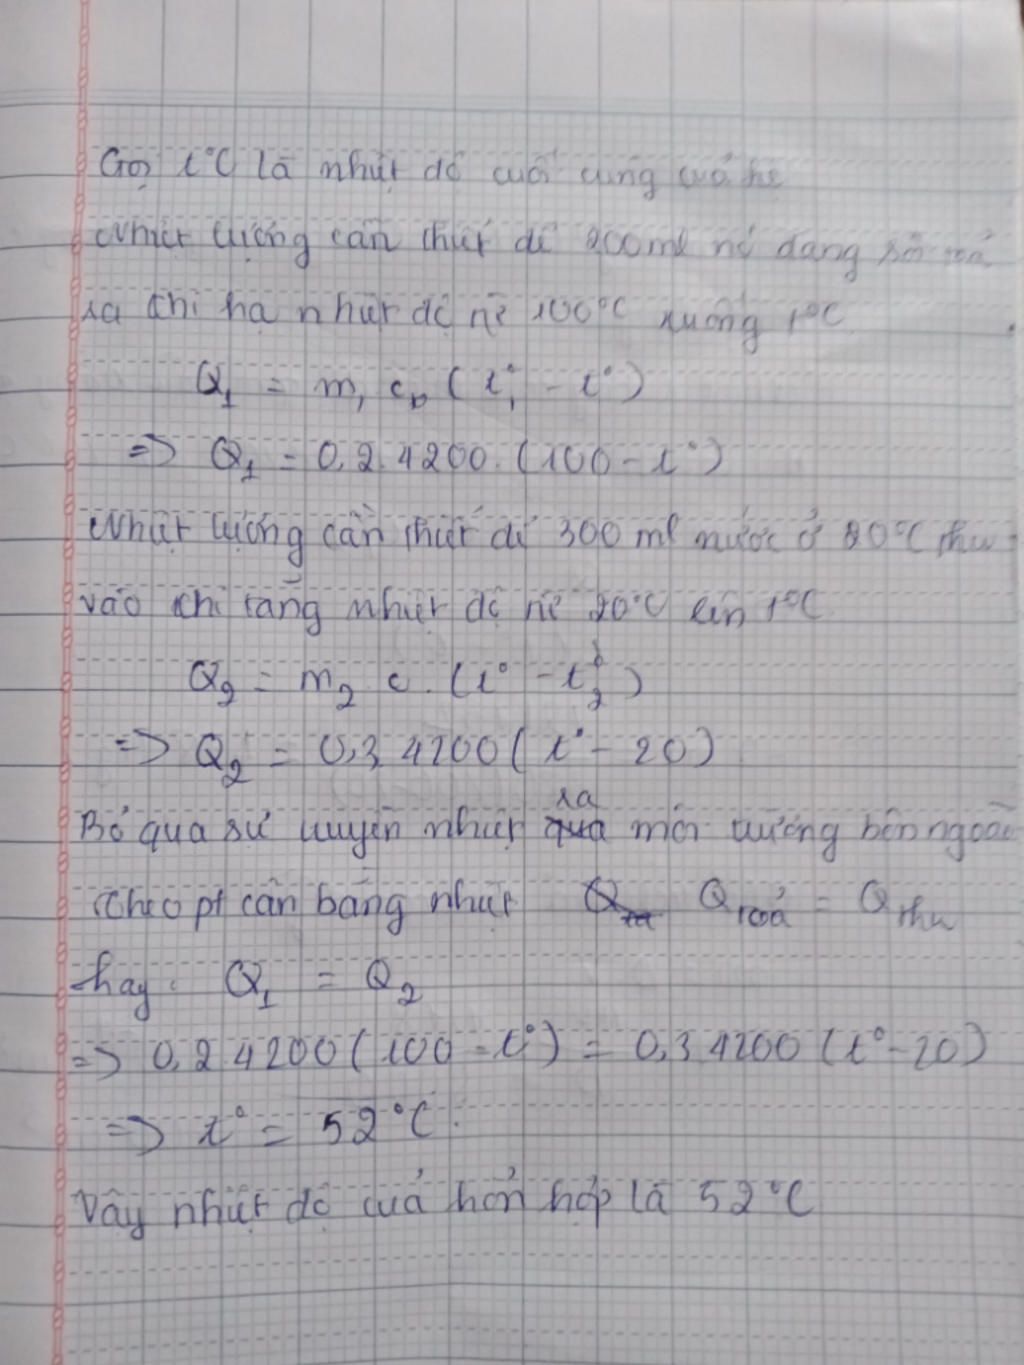 Gọi t°C là nhiệt độ cuối cùng của hệ
Nhiệt lượng cần thiết để 200ml nc đang sôi toả
ra khi hạ nhiệt độ từ 100°C xuống t°C
Q₁ = m₁ c₁ (t°₁ - t°)
=> Q₁ = 0,2.4200.(100 - t°)
Nhiệt lượng cần thiết để 300 ml nước ở 20°C thu
vào khi tăng nhiệt độ từ 20°C lên t°C
Q₂ = m₂ c . (t° - t°₂)
=> Q₂ = 0,3 4200 ( t° - 20)
Bỏ qua sự truyền nhiệt ra môi trường bên ngoài
Theo pt cân bằng nhiệt Q toả = Q thu
hay : Q₁ = Q₂
=> 0,2 4200 (100 - t°) = 0,3 4200 (t° - 20)
=> t° = 52°C.
Vậy nhiệt độ của hỗn hợp là 52°C